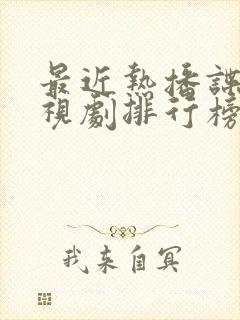 最近熱播諜
視劇排行榜
我来自冥